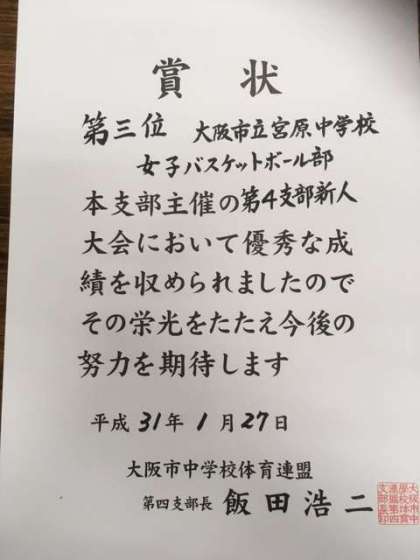 賞 状
第三位 大阪市立宮原中学校
女子バスケットボール部
本支部主催の第4支部新人
大会において優秀な成
績を収められましたので
その栄光をたたえ今後の
努力を期待します
平成 31年 1月 27日
大阪市中学校体育連盟
第四支部長 飯田浩二